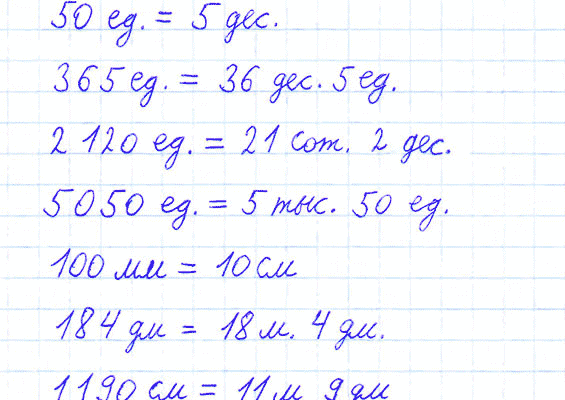 50 ед. = 5 дес.
365 ед. = 36 дес. 5 ед.
2 120 ед. = 21 сот. 2 дес.
5050 ед. = 5 тыс. 50 ед.
100 мм = 10 см
184 дм = 18 м. 4 дм.
1190 см = 11 м 9 дм